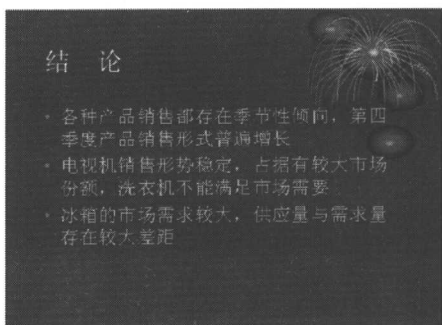 结 论
• 各种产品销售都存在季节性倾向，第四
季度产品销售形式普遍增长
• 电视机销售形势稳定，占据有较大市场
份额，洗衣机不能满足市场需要
• 冰箱的市场需求较大，供应量与需求量
存在较大差距